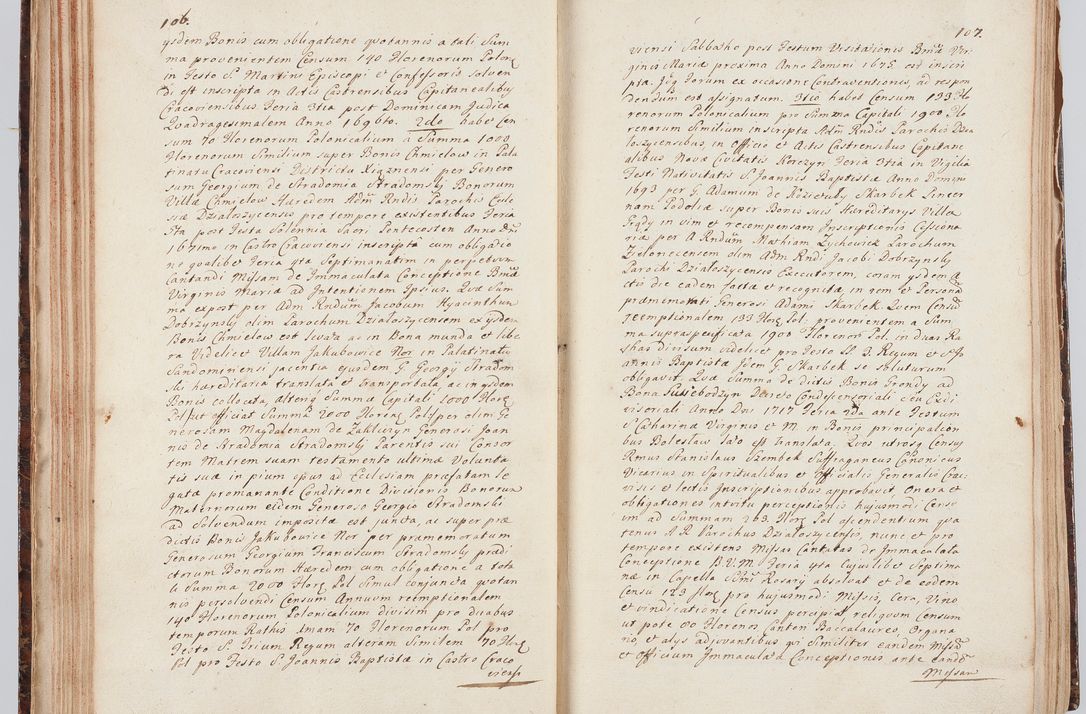 106.
ysdem Bonis cum obligatione quotannis a tali Sum
ma provenientem Censum 140 Florenorum Polon
in Festo S. Martini Episcopi et Confessoris solven
di est inscripta in Actis Castrensibus Capitanealibus
Cracoviensibus Feria 3tia post Dominicam Judica
Quadragesimalem Anno 1696to. 2do habet Cen
sum 70 Florenorum Polonicalium à Summa 1000
Florenorum Similium super Bonis Chmielow in Pala
tinatu Cracoviensi Districtu Xiąznensi per Genero
sum Georgium de Stradomia Stradomsky Bonorum
Villæ Chmielow Hæredem Adm Rndis Parochis Eccle
siæ Dzialoszycensis pro tempore existentibus Feria
5ta post Festa Solennia Sacri Pentecosten Anno Dni
1691mo in Castro Cracoviensi inscripta cum obligatio
ne qualibet Feria 4ta Septimanatim in perpetuum
Cantandi Missam de Immaculata Conceptione Bmæ
Virginis Mariæ ad Intentionem Ipsius. Quæ Sum
ma expost per Adm Rndum Jacobum Hyacinthum
Dobrzynsky olim Parochum Dzialoszycensem ex ysdem
Bonis Chmielow est levata ac in Bona munda et libe
ra Videlicet Villam Jakubowice Nor in Palatinatu
Sandomiriensi jacentia ejusdem G. Georgy Stradom
ski hæreditaria translata et transportata, ac in ysdem
Bonis collocata, alteriq Summæ Capitali 1000 Floren
Pol ut officiat Summam 2000 Floren Pol per olim Ge
nerosam Magdalenam de Zakliczyn Generosi Joan
nis de Stradomia Stradomsky Parentis sui Consor
tem Matrem suam testamento ultimæ Volunta
tis suæ in pium opus ad Ecclesiam præfatam le
gatæ promanante Conditione Divisionis Bonorum
Maternorum eidem Generoso Georgio Stradomski
ad Solvendum impositæ est juncta, ac super præ
dictis Bonis Jakubowice Nor per præmemoratum
Generosum Georgium Franciscum Stradomsky prædi
ctorum Bonorum Hæredem cum obligatione a tota
li Summa 2000 Flor Pol Simul conjuncta quotan
nis persolvendi Censum Annuum reemptionalem
140 Florenorum Polonicalium divisim pro duabus
temporum Rathis 1mam 70 Florenorum Pol pro
Festo S. Trium Regum alteram Similem 70 Flor
Pol pro Festo S. Joannis Baptistæ in Castro Craco
viensi
107.
viensi Sabbatho post Festum Visitationis Bmæ Vir
ginis Mariæ proxima Anno Domini 1675 est inscri
pta. Ibiq Forum ex occasione Contraventionis, ad respon
dendum est assignatum. 3tio habet Censum 133 Flo
renorum Polonicalium pro Summa Capitali 1900 Flo
renorum Similium inscripta Adm Rndis Parochis Dzia
loszycensibus, in Officio et Actis Castrensibus Capitane
alibus Novæ Civitatis Korczyn Feria 3tia in Vigilia
Festi Nativitatis S. Joannis Baptistæ Anno Domini
1693 per G. Adamum de Skarbek Pincer
nam Podoliæ super Bonis suis Hæreditarys Villæ
in vim et recompensam Inscriptionis Cessiona
riæ per A Rndum Mathiam Zychowicz Parochum
Zielonecensem olim Adm Rndi Jacobi Dobrzynsky
Parochi Dzialoszycensis Executorem, coram ysdem A
ctis die eadem factæ et recognitæ in rem et Personam
præmemorati Generosi Adami Skarbek. Quem Censum
reemptionalem 133 Flor Pol. provenientem a Sum
ma supraspecificata 1900 Florenor Pol in duas Ra
thas divisum videlicet pro Festo SS. 3. Regum et S. Jo
annis Baptistæ Idem G. Skarbek se soluturum
obligavit. Quæ Summa de dictis Bonis Grondy ad
Bona Suliebodzyn Decreto Condescensoriali ceu Exdi
visoriali Anno Dni 1717 Feria 2da ante Festum
S Catharinæ Virginis et M. in Bonis principalio
bus Boleslaw Iwo est translata. Quos utrosq Census
Rmus Stanislaus Szembek Suffraganeus Canonicus
Vicarius in Spiritualibus et Officialis Generalis Crac
viensis e lectis Inscriptionibus approbavit, Onera et
obligationes intuitu perceptionis hujusmodi Censu
um ad Summam 263. Flor Pol ascendentium qua
tenus A R Parochus Dzialoszycensis, nunc et pro
tempore existens Missas Cantatas de Immaculata
Conceptione B.V.M. Feria 4ta Cujuslibet Septima
næ in Capella Smi Rosary absolvat et de eodem
Censu 183 flor pro hujusmodi Missis, Cera, Vino
et vindicatione Census percipiat reliquum Censum
ut pote 80 Florenos Cantori Baccalaureo, Organa
rio et alys adjuvantibus qui Similiter eandem Missam
et Officium Immaculatæ Conceptionis ante eandem
Missam